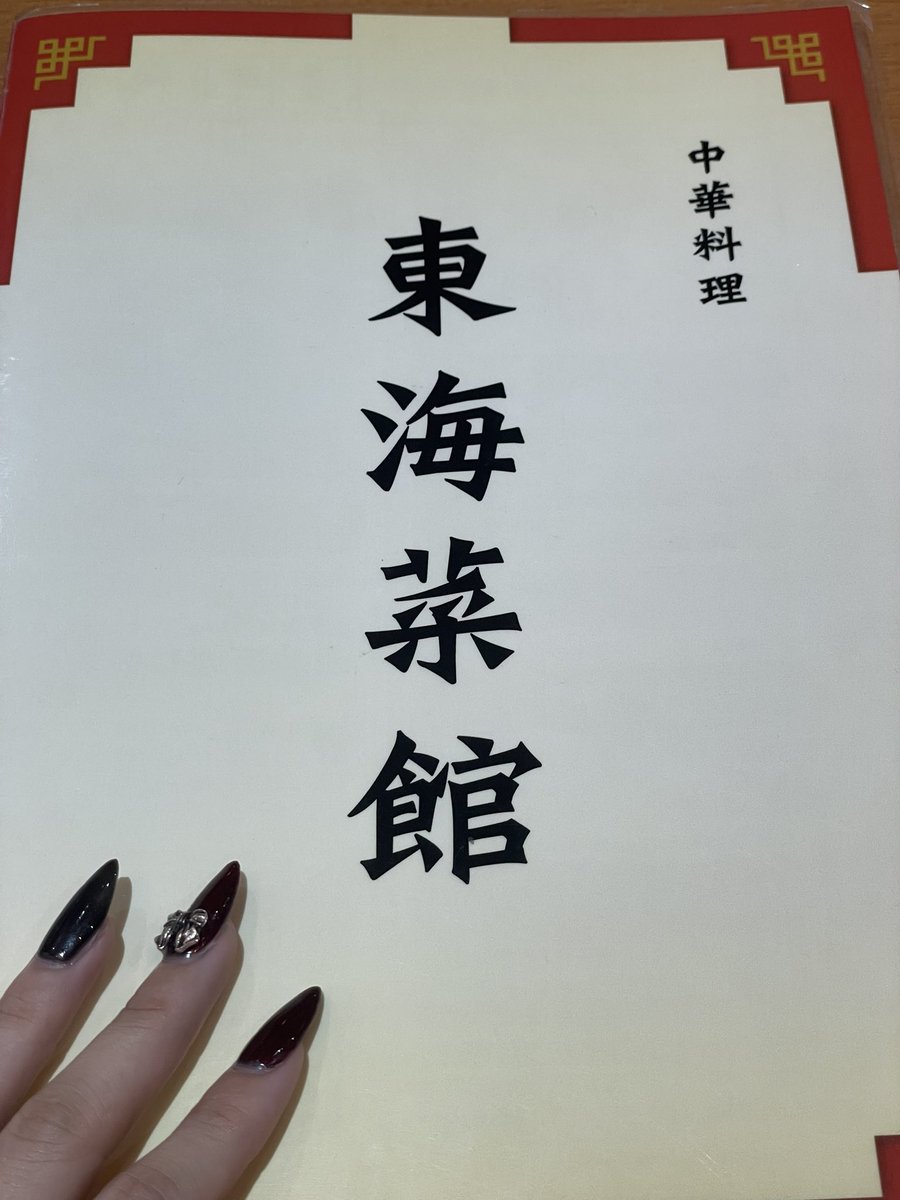 中華料理
東海菜館